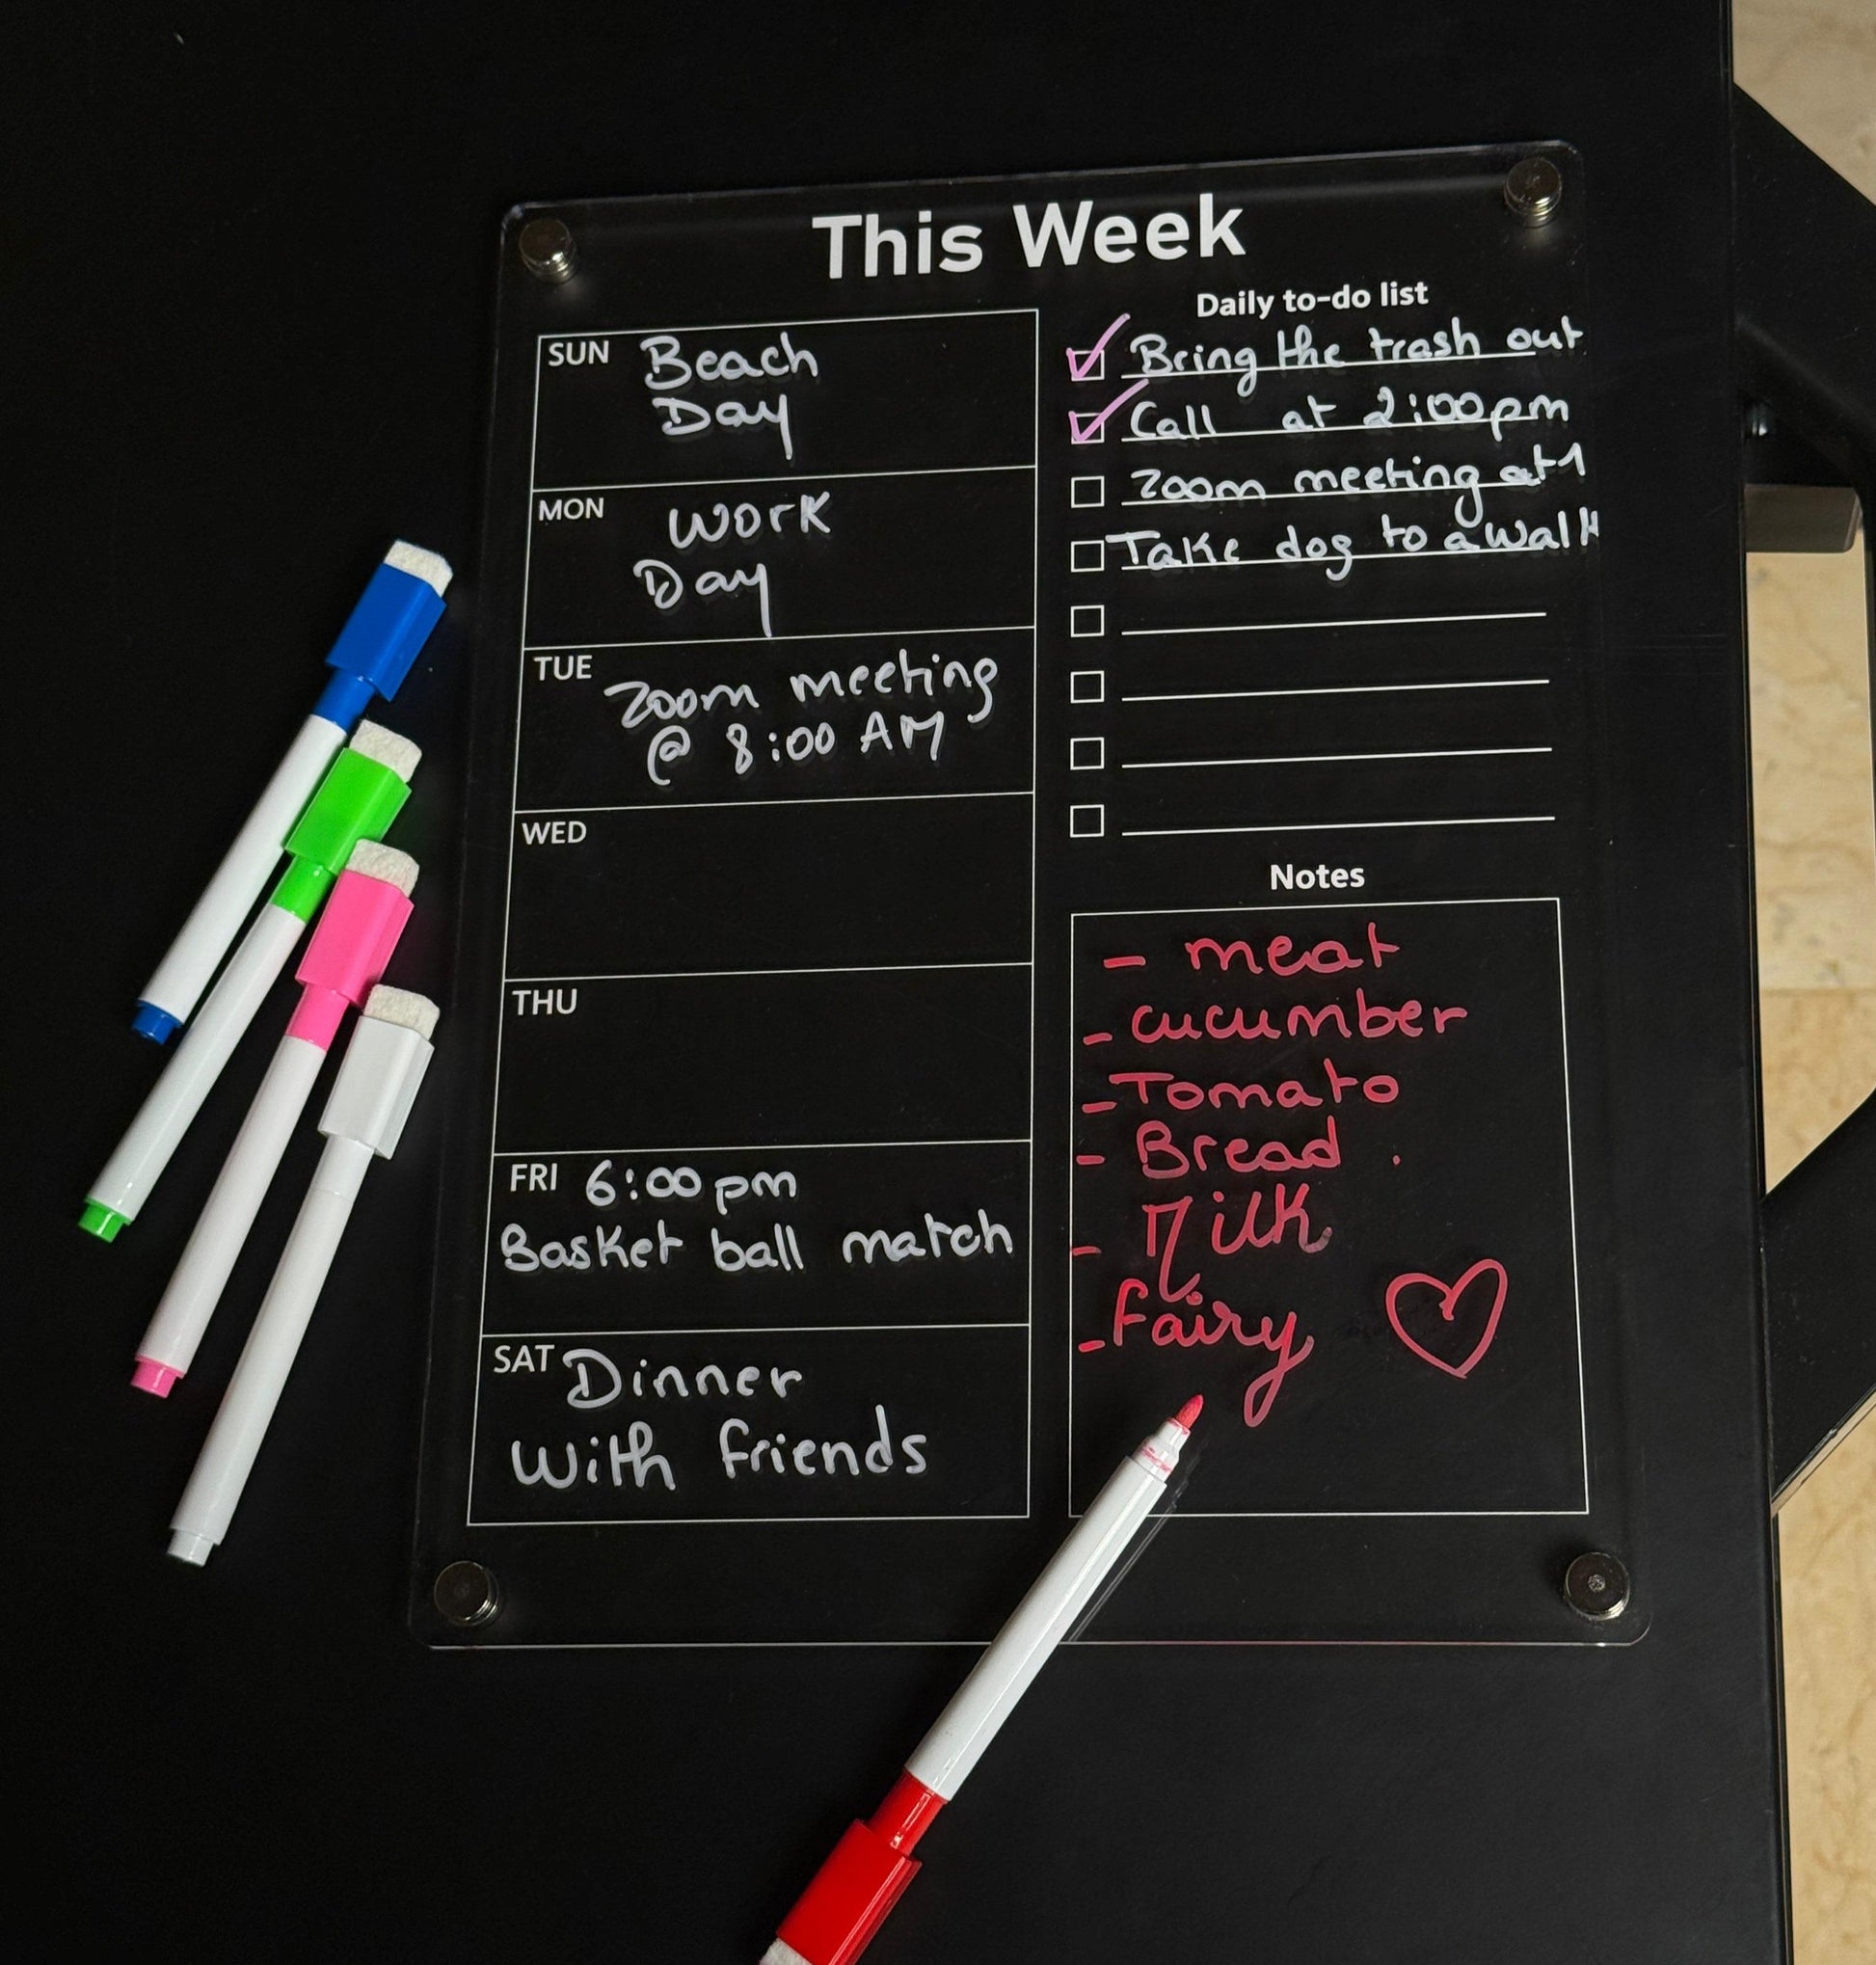 This Week
SUN Beach
Day
MON Work
Day
TUE Zoom meeting
@ 8:00 AM
WED
THU
FRI 6:00 pm
Basket ball match
SAT Dinner
With friends
Daily to-do list
Bring the trash out
Call at 2:00pm
Zoom meeting at 1
Take dog to a walk
Notes
- meat
- cucumber
- Tomato
- Bread .
- Milk
- fairy